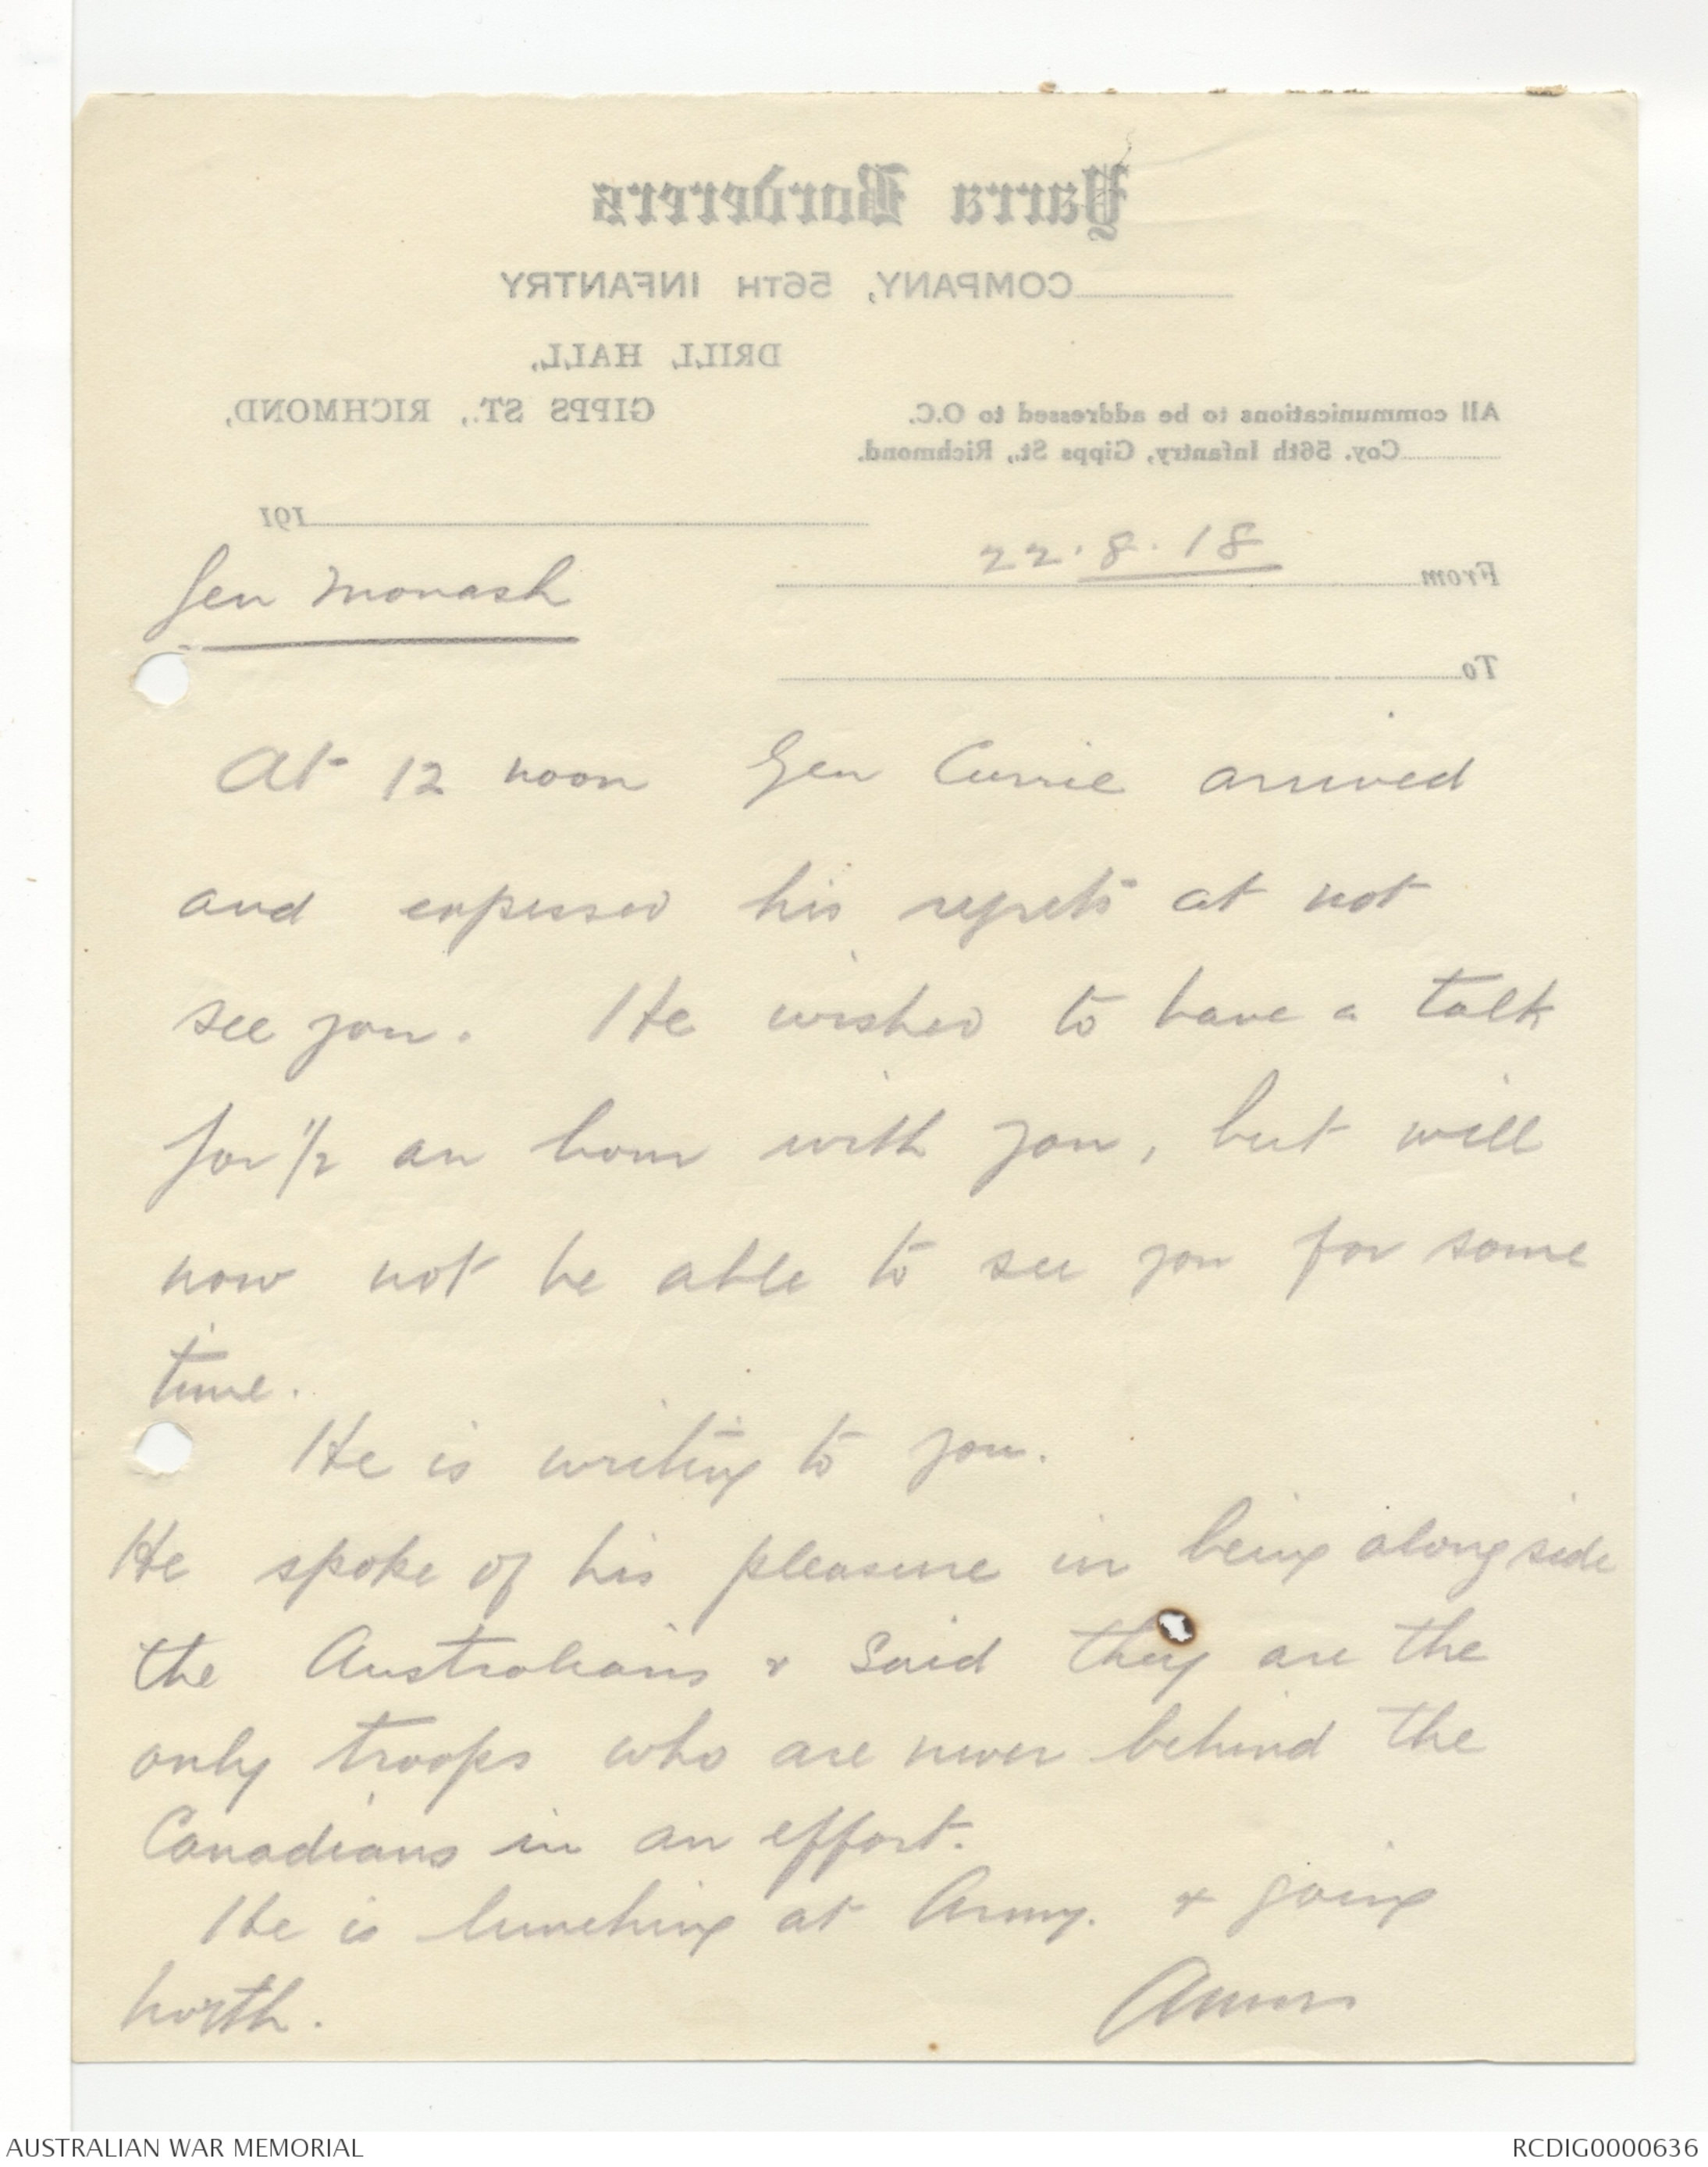 Yarra Borderers
COMPANY, 56TH INFANTRY
DRILL HALL,
GIPPS ST., RICHMOND,
All communications to be addressed to O.C.
Coy. 56th Infantry, Gipps St., Richmond.
191
22.8.18
From
Gen Monash
To
At 12 noon Gen Currie arrived
and expressed his regrets at not
see you. He wished to have a talk
for 1/2 an hour with you, but will
now not be able to see you for some
time.
He is writing to you.
He spoke of his pleasure in being alongside
the Australians & said they are the
only troops who are never behind the
Canadians in an effort.
He is lunching at Army. & going
north.
AUSTRALIAN WAR MEMORIAL
RCDIG0000636